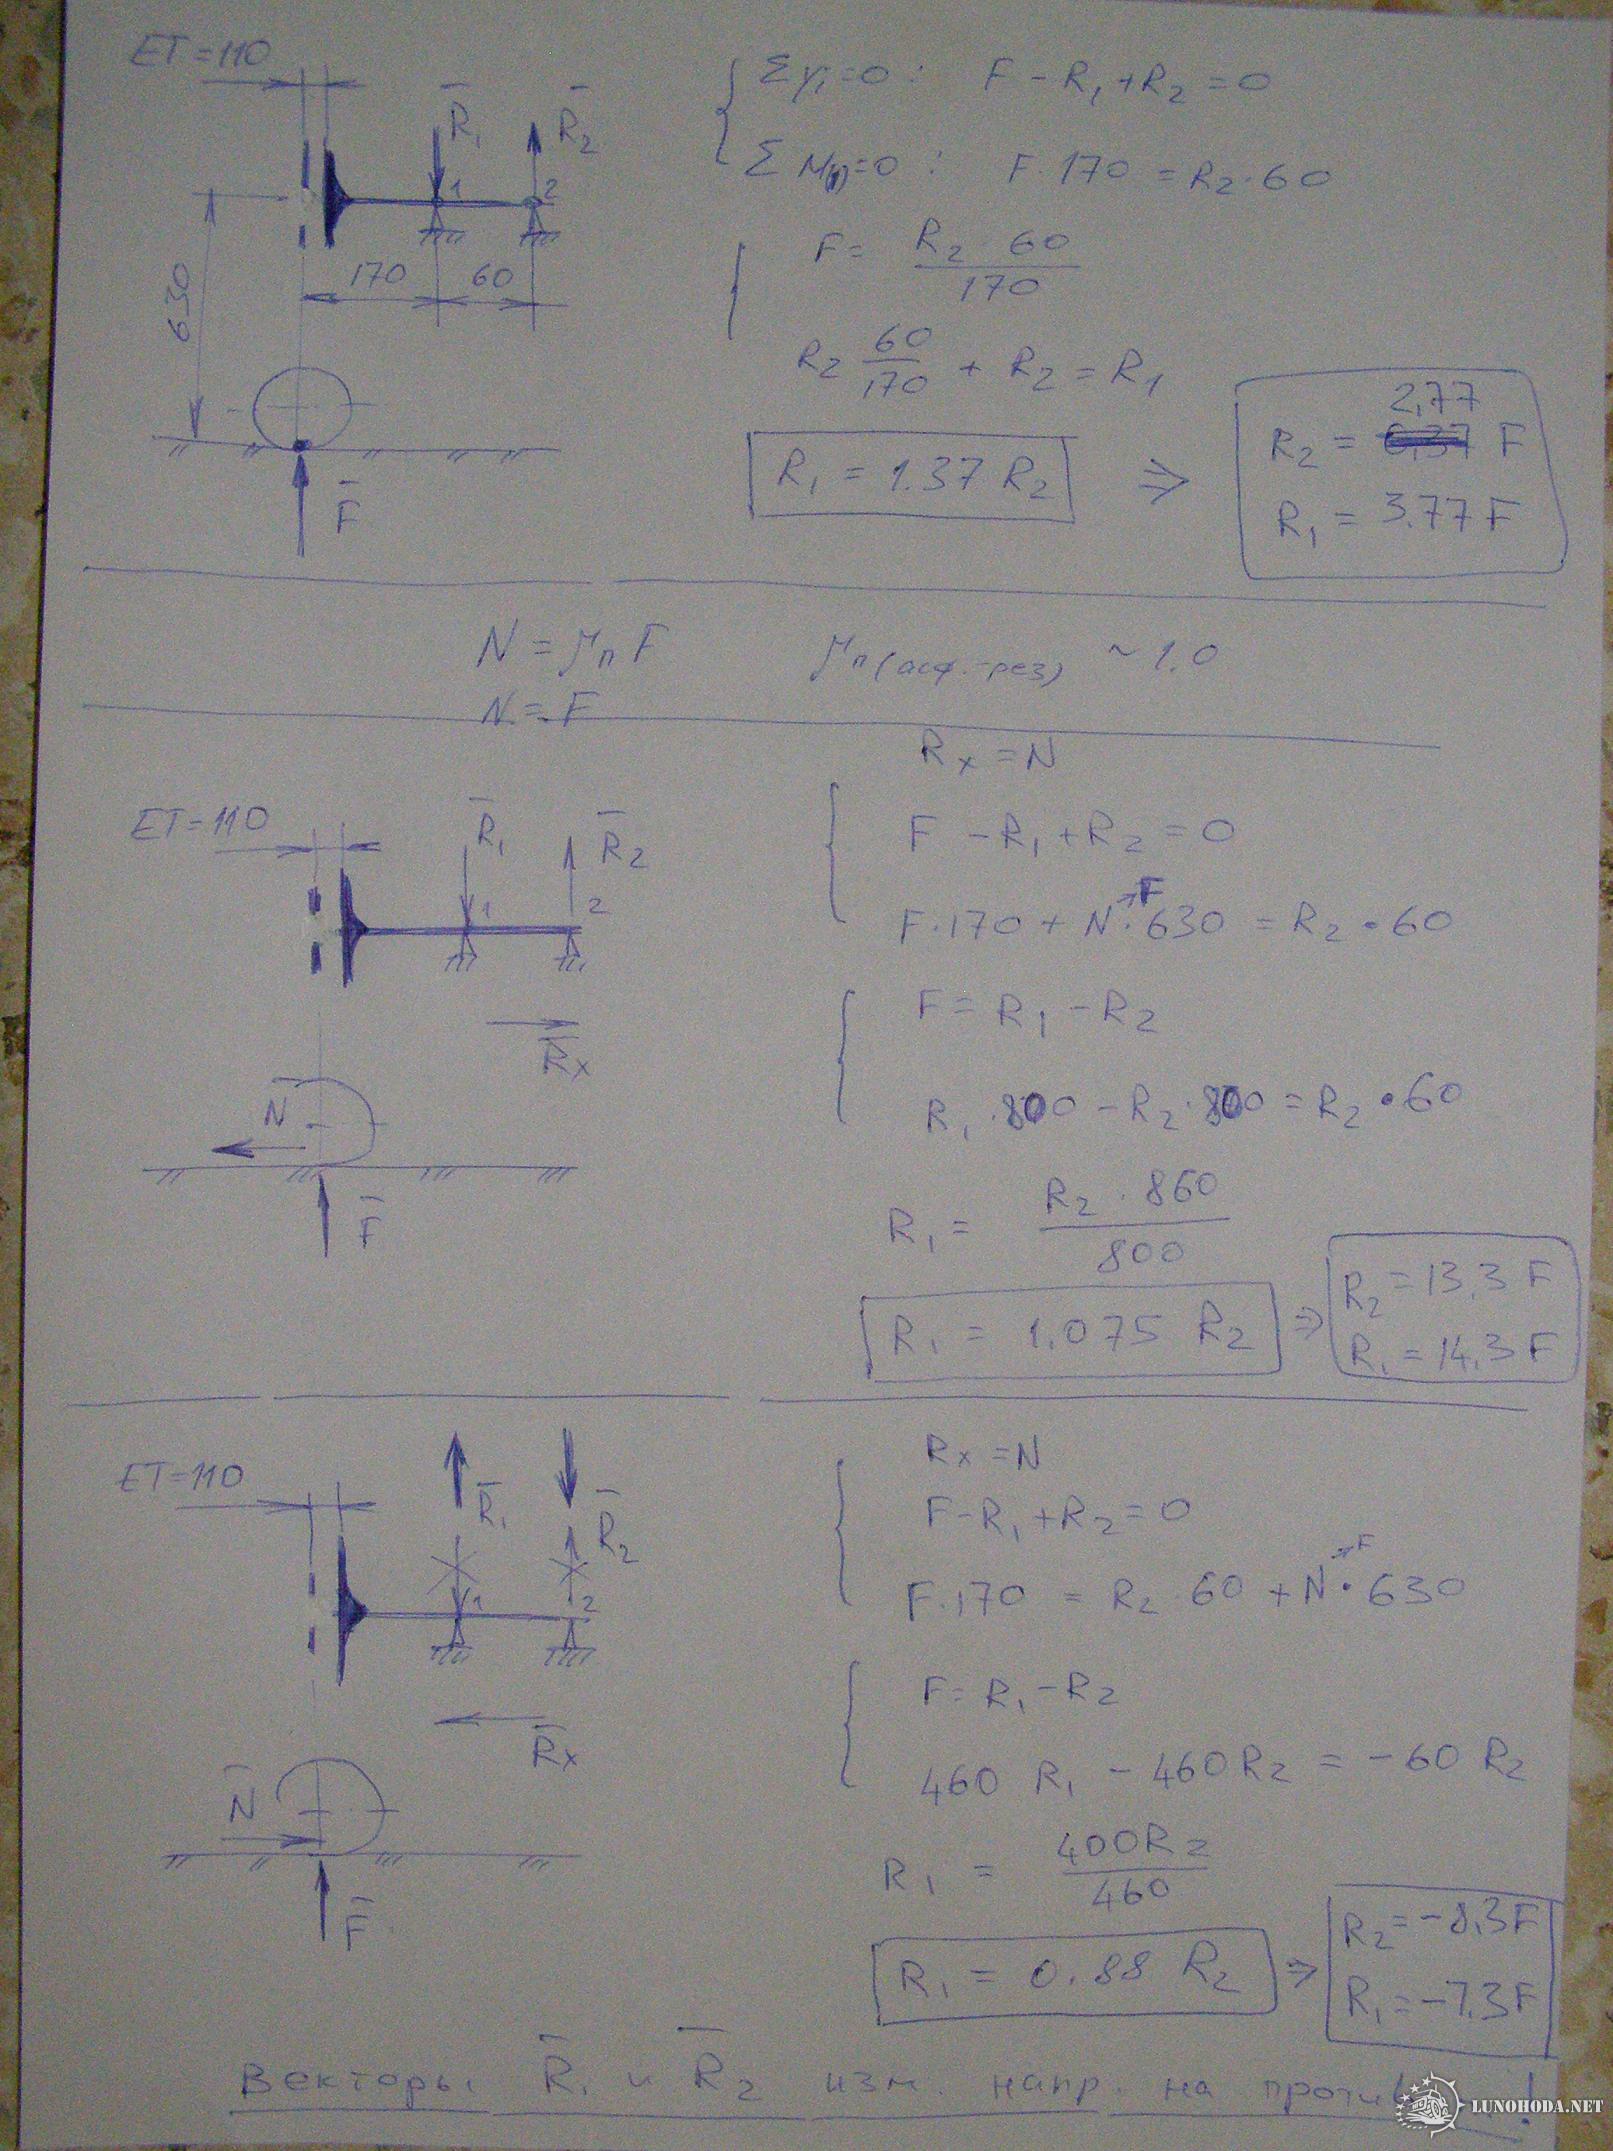 ET=110
R₁
R₂
1
2
170
60
630
F
Σyᵢ=0 : F - R₁ + R₂ = 0
Σ M(1)=0 : F·170 = R₂·60
F = R₂ 60 / 170
R₂ 60/170 + R₂ = R₁
R₁ = 1.37 R₂ ⇒
2,77
R₂ = F
R₁ = 3.77 F
N = μп F
μп (асф.-рез) ~ 1.0
N = F
ET=110
R₁
R₂
1
2
Rx
N
F
Rx = N
F - R₁ + R₂ = 0
F·170 + N·630 = R₂·60
→F
F = R₁ - R₂
R₁·800 - R₂·800 = R₂·60
R₁ = R₂·860 / 800
R₁ = 1.075 R₂ ⇒
R₂ = 13,3 F
R₁ = 14,3 F
ET=110
R₁
R₂
1
2
Rx
N
F
Rx = N
F - R₁ + R₂ = 0
F·170 = R₂·60 + N·630
→F
F = R₁ - R₂
460 R₁ - 460 R₂ = -60 R₂
R₁ = 400R₂ / 460
R₁ = 0.88 R₂ ⇒
R₂ = -8,3F
R₁ = -7.3F
Векторы R₁ и R₂ изм. напр. на !
LUNOHODA.NET